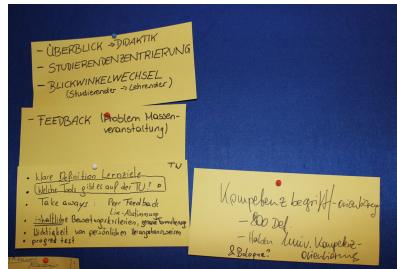 - ÜBERBLICK → DIDAKTIK
- STUDIERENDENZENTRIERUNG
- BLICKWINKELWECHSEL
(Studierender → Lehrender)
- FEEDBACK (Problem Massen-
veranstaltung)
TU
• klare Definition Lernziele
• Welche Tools gibt es auf der TU?
• Take aways: Peer Feedback
Live-Abstimmung
• inhaltliche Bewertungskriterien,
• Wichtigkeit von persönlichen
• progress test
Kompetenzbegriff-orientierung
- 800 Def.
- Halden Univ. Kompetenz-
& Bologna? orientierung